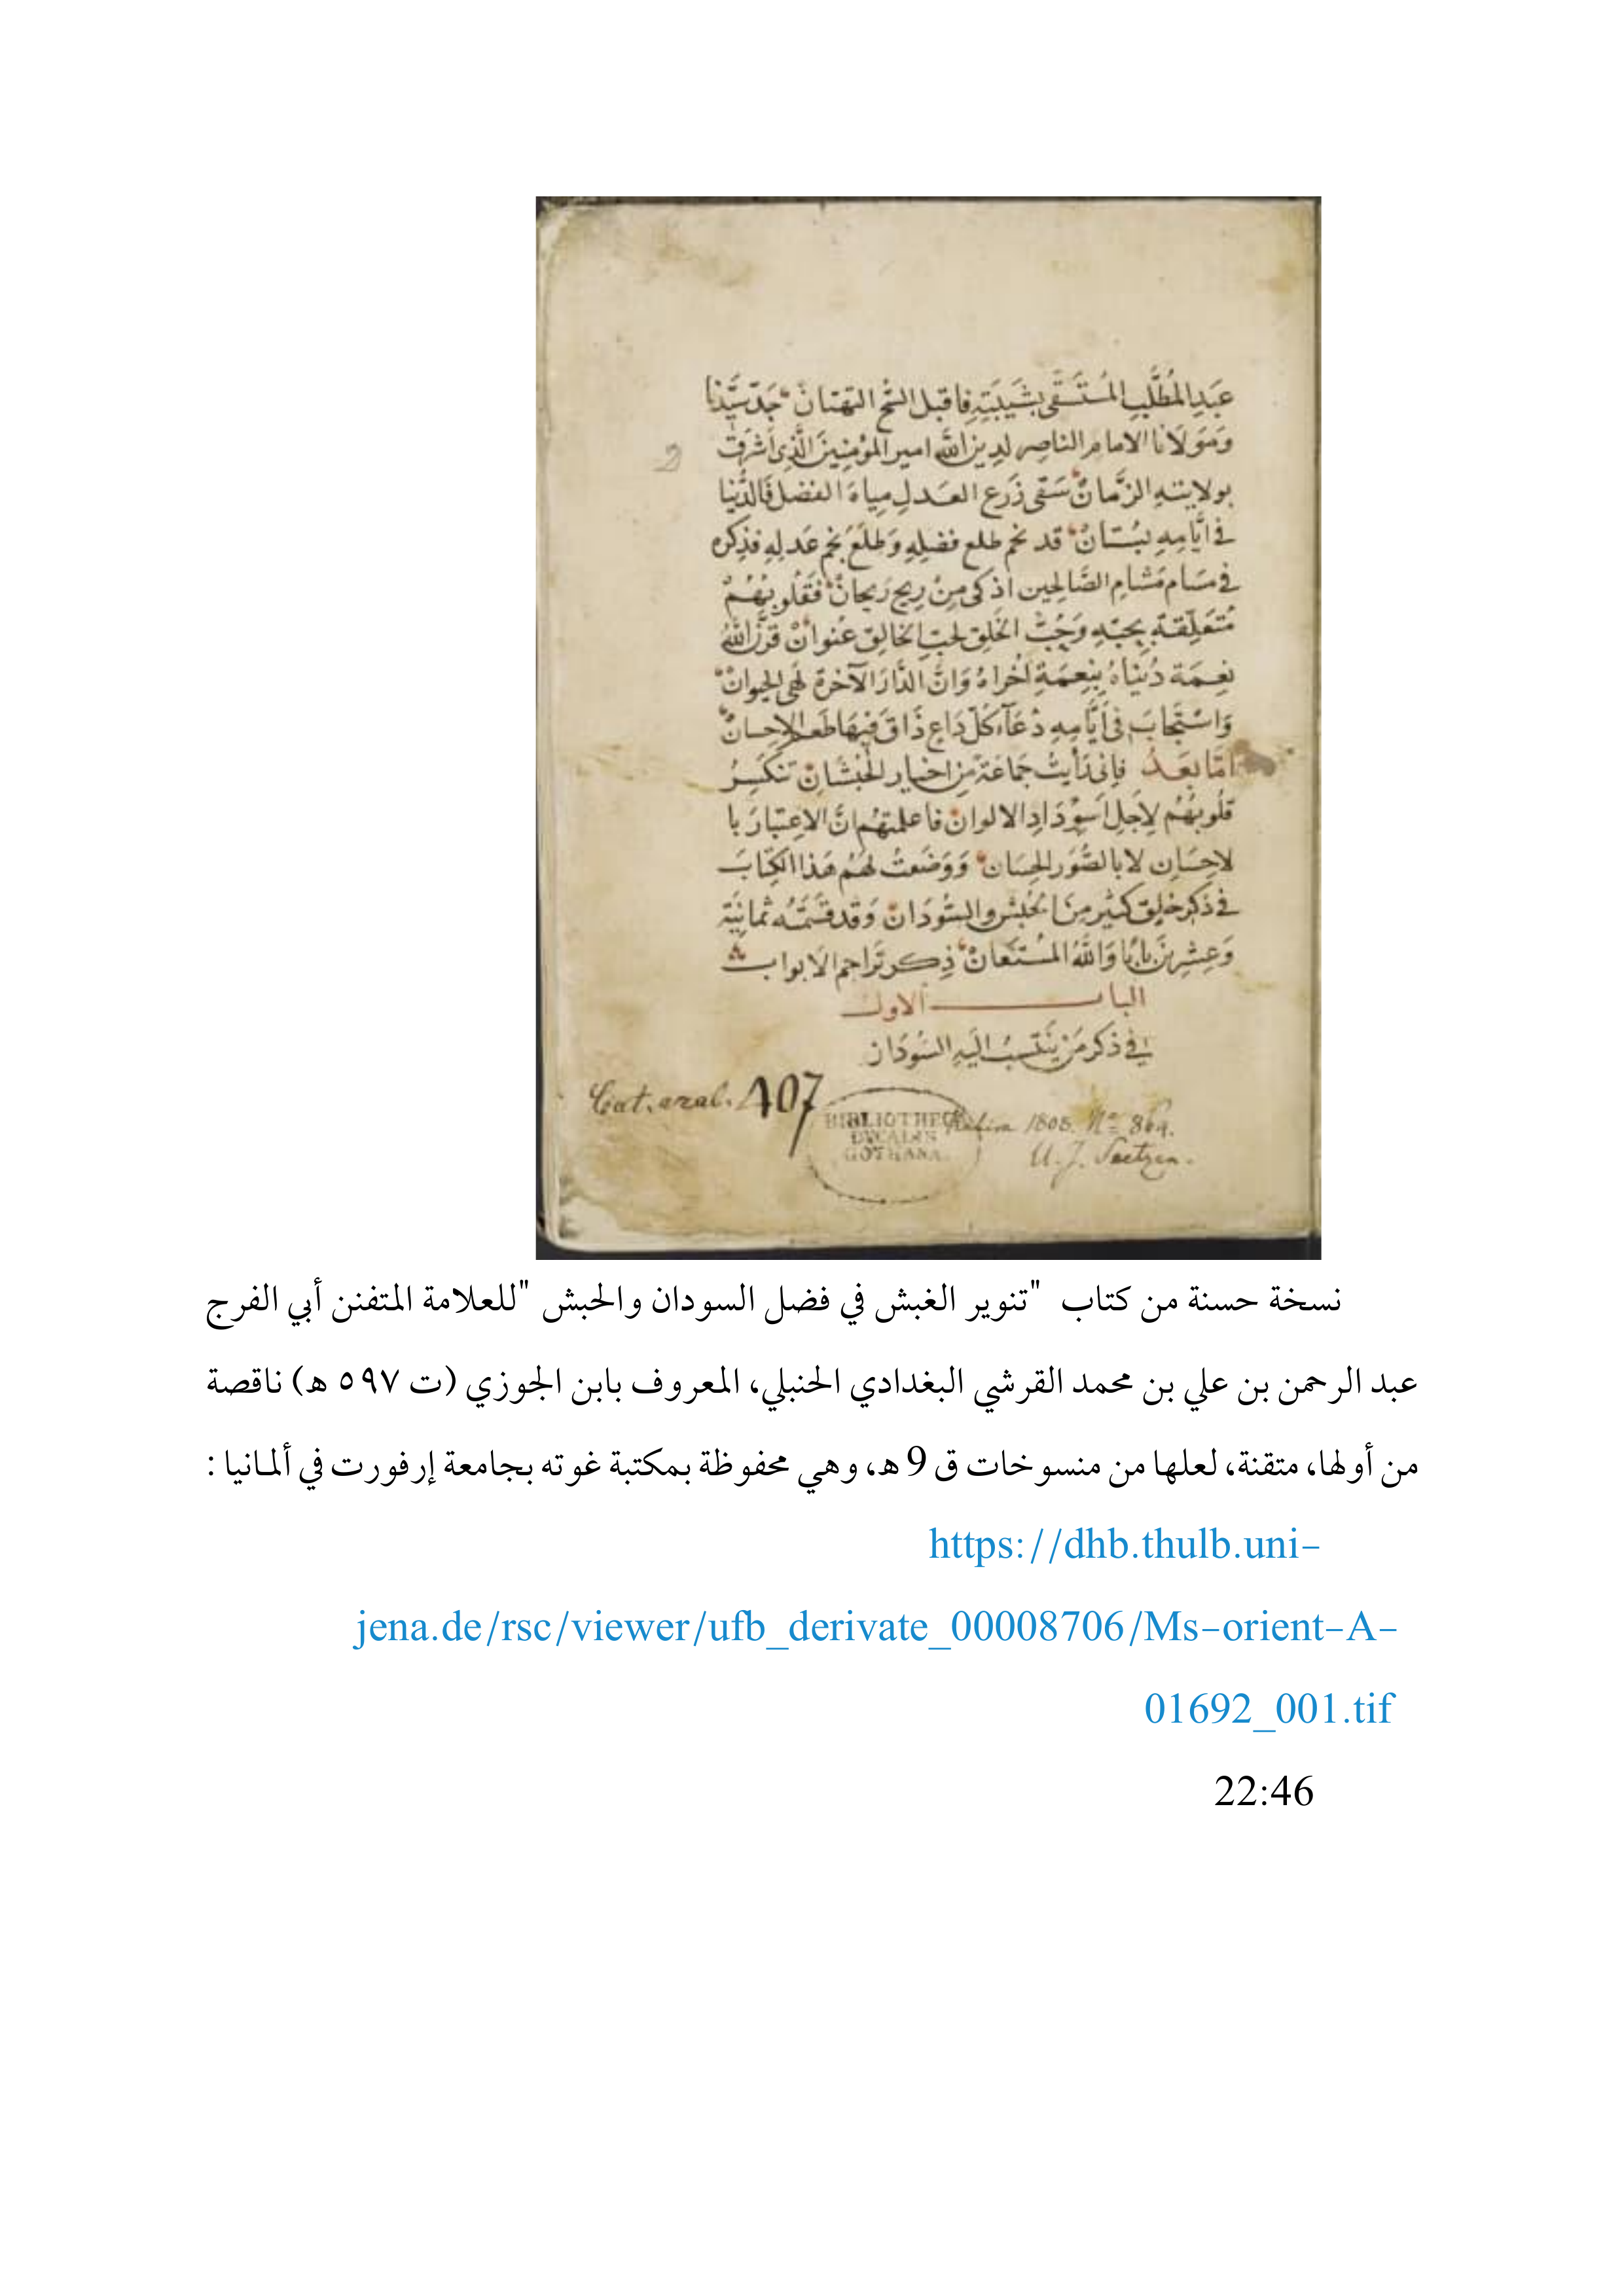 عَبدِ المُطَّلِبِ المُسْتَسْقَى بِشَيبَتِهِ فاقبل السَّحُّ التهتان جَدّ سَيِّدنَا
وَمَوْلَانا الامام الناصِر لدِين اللَّه امير المؤمِنِينَ الَّذِى اَشرقَت
2
بولايتهِ الزَّمانُ سَقى زَرعَ العَدلِ مياهَ الفضل فَالدُّنيا
فى ايَّامِهِ بُستانٌ قد نجم طلع فضلِهِ وَطلَعَ نجم عَدلِهِ فذِكره
فى مسَام مَشامِ الصَّالحِين اذكى مِنْ رِيح رَيحانٌ فقُلُوبُهُمْ
مُتَعَلِّقة بِحُبّهِ وَحُبُّ الخَلقِ لحبّ الخالِق عُنوانْ قَرَنَ اللَّهُ
نِعمَة دُنيَاهُ بِنِعمَةِ اُخرَاهُ وَانَّ الدَّارَ الآخرة لَهى الحَيوانْ
وَاسْتَجَابَ فى اَيَّامِهِ دُعَآءَ كُلّ دَاعٍ ذَاقَ فِيهَا طعم الإحسان
امّا بَعدُ فانى رَأيتُ جَمَاعَةً مِن اخيار الحُبشَان تنكسِرُ
قلُوبُهُم لِاَجلِ اسوِدَادِ الالوان فاعلمتهُم انَّ الاعتبَارَ با
لاحِسَانِ لا بالصُّوَر الحِسَان وَوَضَعتُ لهُم هَذا الكِتَابَ
فى ذكر خلِق كثير مِنَ الحُبش والسُّودَان وَقد قسَّمتُه ثمانِيَة
وَعِشرِينَ بَابًا وَاللَّهُ المُستَعانُ ذِكر تَراجم الابواب
الباب الاول
فى ذكر مَن يَنتَسِبُ اليَهِ السُودَان
Cat. arab. 407
BIBLIOTHECA
DVCALIS
GOTHANA.
Kahira 1808. No 869.
U. J. Seetzen.
نسخة حسنة من كتاب "تنوير الغبش في فضل السودان والحبش "للعلامة المتفنن أبي الفرج
عبد الرحمن بن علي بن محمد القرشي البغدادي الحنبلي، المعروف بابن الجوزي (ت ٥٩٧ هـ) ناقصة
من أولها، متقنة، لعلها من منسوخات ق 9 هـ، وهي محفوظة بمكتبة غوته بجامعة إرفورت في ألمانيا :
https://dhb.thulb.uni-
jena.de/rsc/viewer/ufb_derivate_00008706/Ms-orient-A-
01692_001.tif
22:46